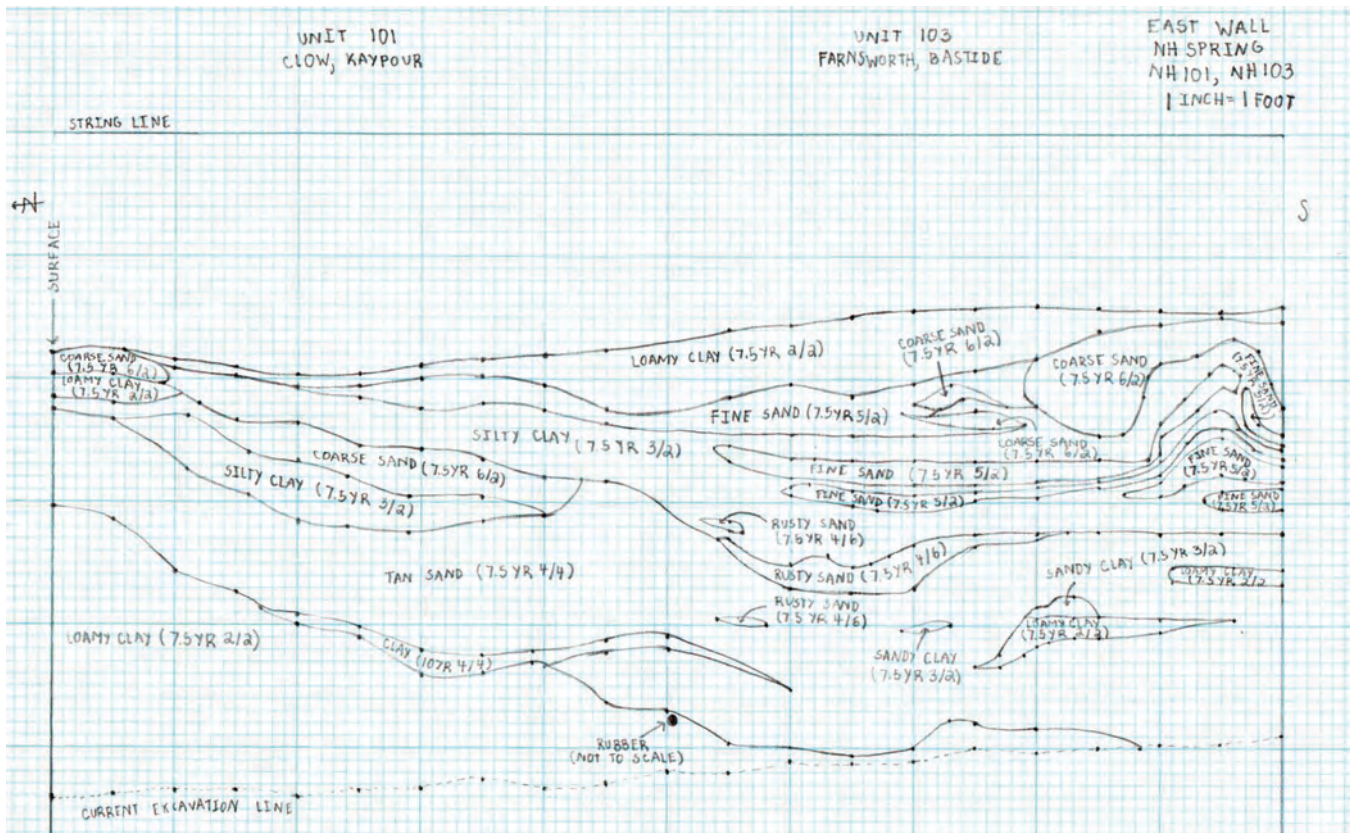 UNIT 101
CLOW, KAYPOUR
UNIT 103
FARNSWORTH, BASTIDE
EAST WALL
NH SPRING
NH101, NH103
1 INCH = 1 FOOT
STRING LINE
N
S
SURFACE
COARSE SAND
(7.5YR 6/2)
LOAMY CLAY
(7.5YR 2/2)
LOAMY CLAY (7.5YR 2/2)
COARSE SAND
(7.5YR 6/2)
COARSE SAND
(7.5YR 6/2)
FINE SAND
(7.5YR 5/2)
FINE SAND (7.5YR 5/2)
SILTY CLAY (7.5YR 3/2)
COARSE SAND
(7.5YR 6/2)
COARSE SAND (7.5YR 6/2)
FINE SAND (7.5YR 5/2)
FINE SAND
(7.5YR 5/2)
SILTY CLAY (7.5YR 3/2)
FINE SAND (7.5YR 5/2)
FINE SAND
(7.5YR 5/2)
RUSTY SAND
(7.5YR 4/6)
TAN SAND (7.5YR 4/4)
RUSTY SAND (7.5YR 4/6)
SANDY CLAY (7.5YR 3/2)
LOAMY CLAY
(7.5YR 2/2
RUSTY SAND
(7.5YR 4/6)
LOAMY CLAY
(7.5YR 2/2)
LOAMY CLAY (7.5YR 2/2)
CLAY (10YR 4/4)
SANDY CLAY
(7.5YR 3/2)
RUBBER
(NOT TO SCALE)
CURRENT EXCAVATION LINE